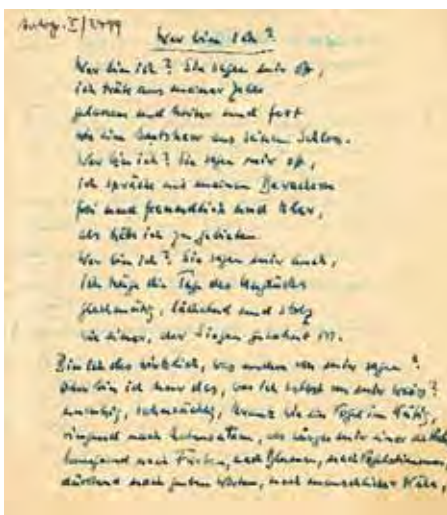 Wer bin ich?
Wer bin ich? Sie sagen mir oft,
ich träte aus meiner Zelle
gelassen und heiter und fest
wie ein Gutsherr aus seinem Schloss.
Wer bin ich? Sie sagen mir oft,
ich spräche mit meinen Bewachern
frei und freundlich und klar,
als hätte ich zu gebieten.
Wer bin ich? Sie sagen mir auch,
ich trüge die Tage des Unglücks
gleichmütig, lächelnd und stolz
wie einer, der Siegen gewohnt ist.
Bin ich das wirklich, was andere von mir sagen?
Oder bin ich nur das, was ich selbst von mir weiss?
unruhig, sehnsüchtig, krank, wie ein Vogel im Käfig,
ringend nach Lebensatem, als würgte mir einer die
hungernd nach Farben, nach Blumen, nach Vogelstimmen,
dürstend nach guten Worten, nach menschlicher Nähe,